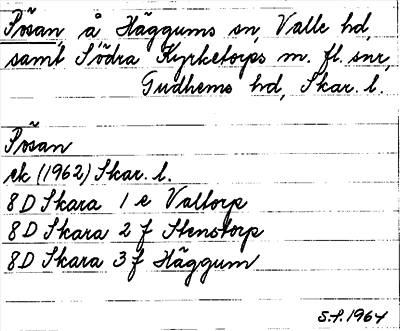 Pösan, å Häggums sn, Valle hd,
samt Södra Kyrketorps m. fl. snr,
Gudhems hd, Skar. l.
Pösan
ek (1962) Skar. l.
8D Skara 1 e Valtorp
8D Skara 2 f Stenstorp
8D Skara 3 f Häggum
S.F. 1964